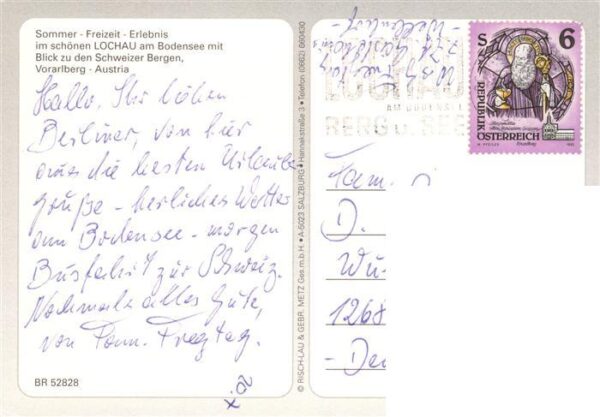 Sommer - Freizeit - Erlebnis
im schönen LOCHAU am Bodensee mit
Blick zu den Schweizer Bergen,
Vorarlberg - Austria
Hallo. Ihr lieben
Berliner, von hier
aus die besten Urlaubs
grüße - herliches Wetter
am Bodensee - morgen
Busfahrt zur Schweiz.
Nochmals alles Gute,
von Fam. Freytag.
BR 52828
© RISCH-LAU & GEBR. METZ Ges.m.b.H. • A-5023 SALZBURG • Hannakstraße 3 • Telefon (0662) 860430
LOCHAU
AM BODENSEE
BERG U. SEE
S 6
REPUBLIK
ÖSTERREICH
Fam.
D.
Wu-
1268
- Deu